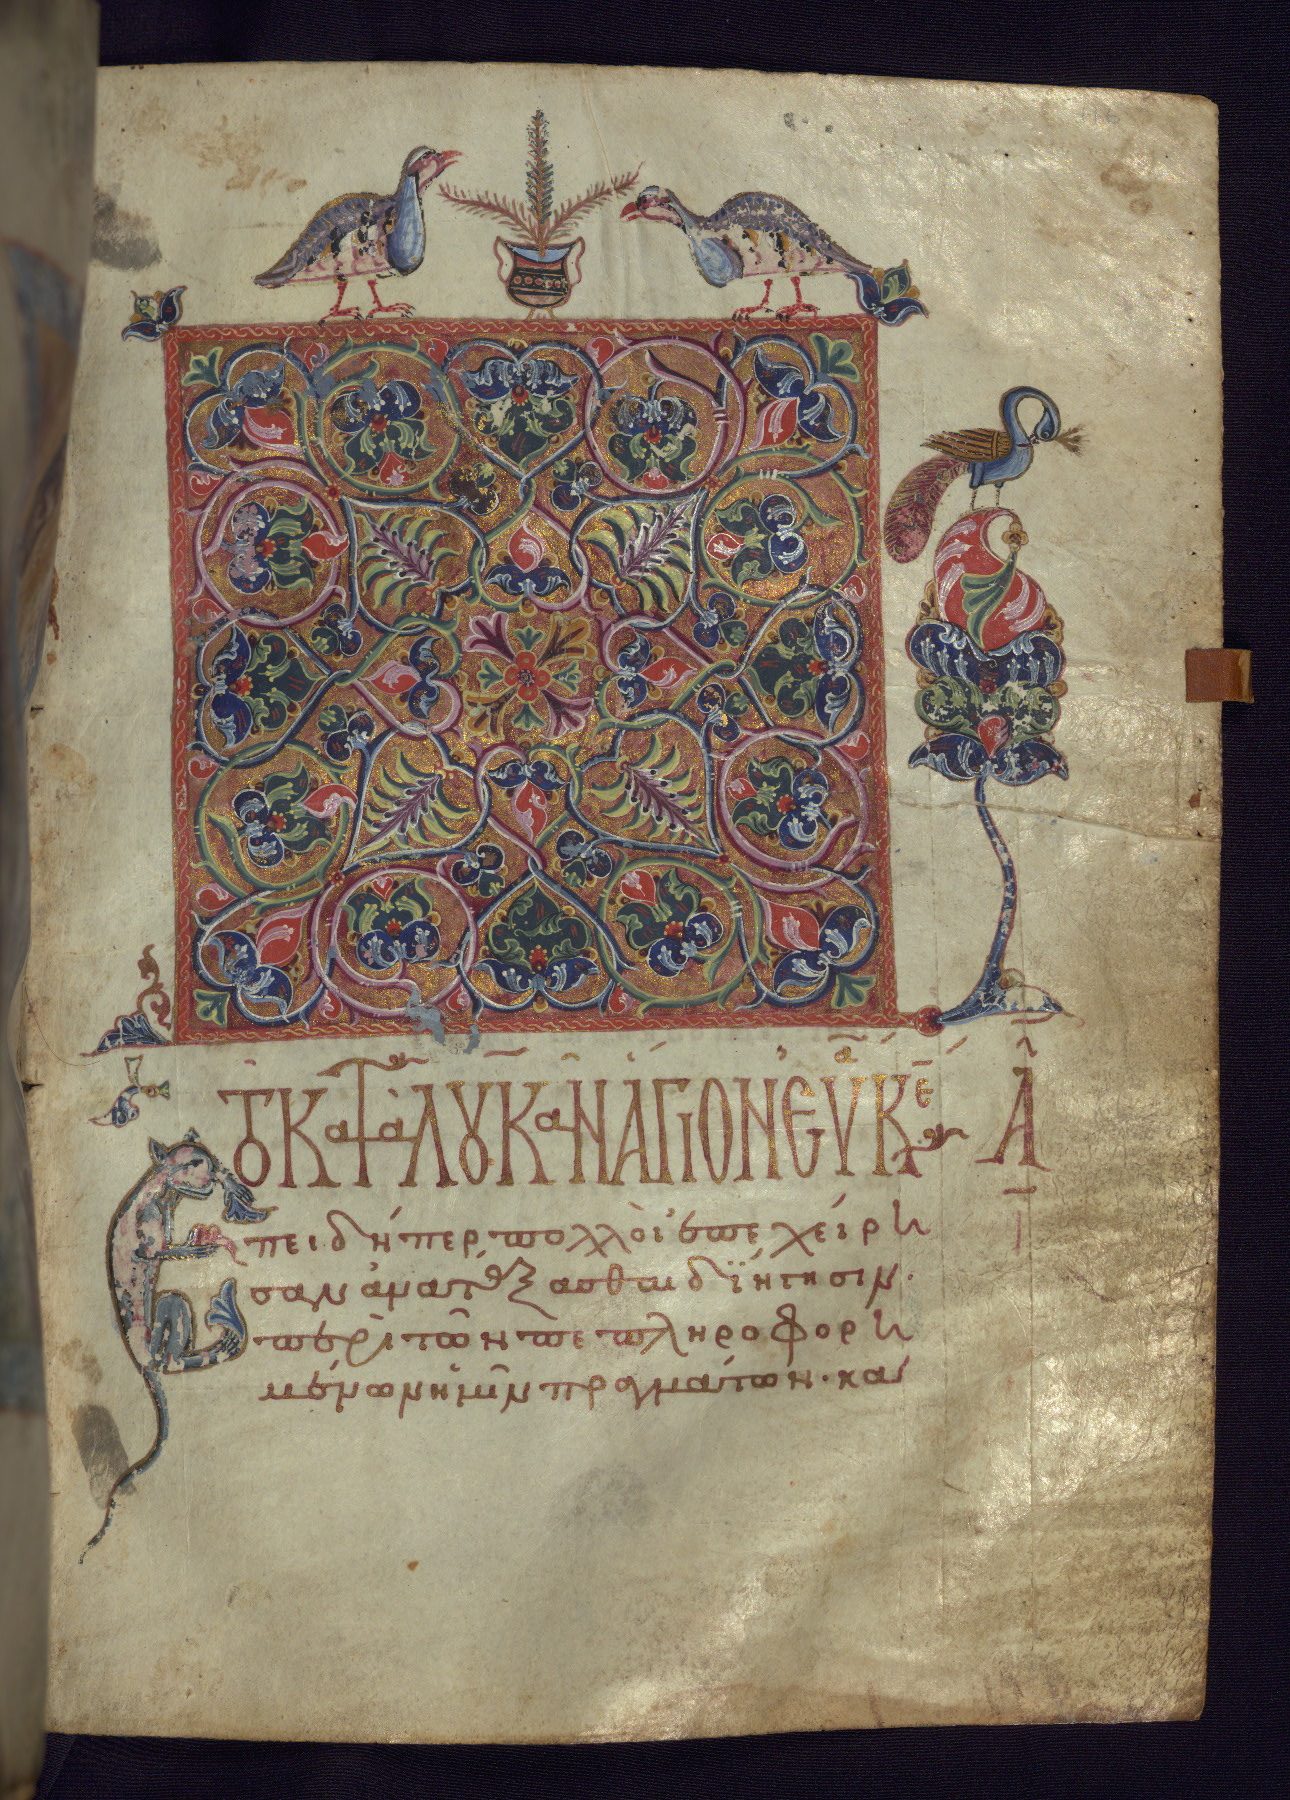 τοῦ κατὰ Λουκᾶν ἅγιον εὐ κε Α
Ἐπειδήπερ πολλοὶ ἐπεχείρη
σαν ἀνατάξασθαι διήγησιν·
περὶ τῶν πεπληροφορη
μένων ἡμῖν πραγμάτων· κα